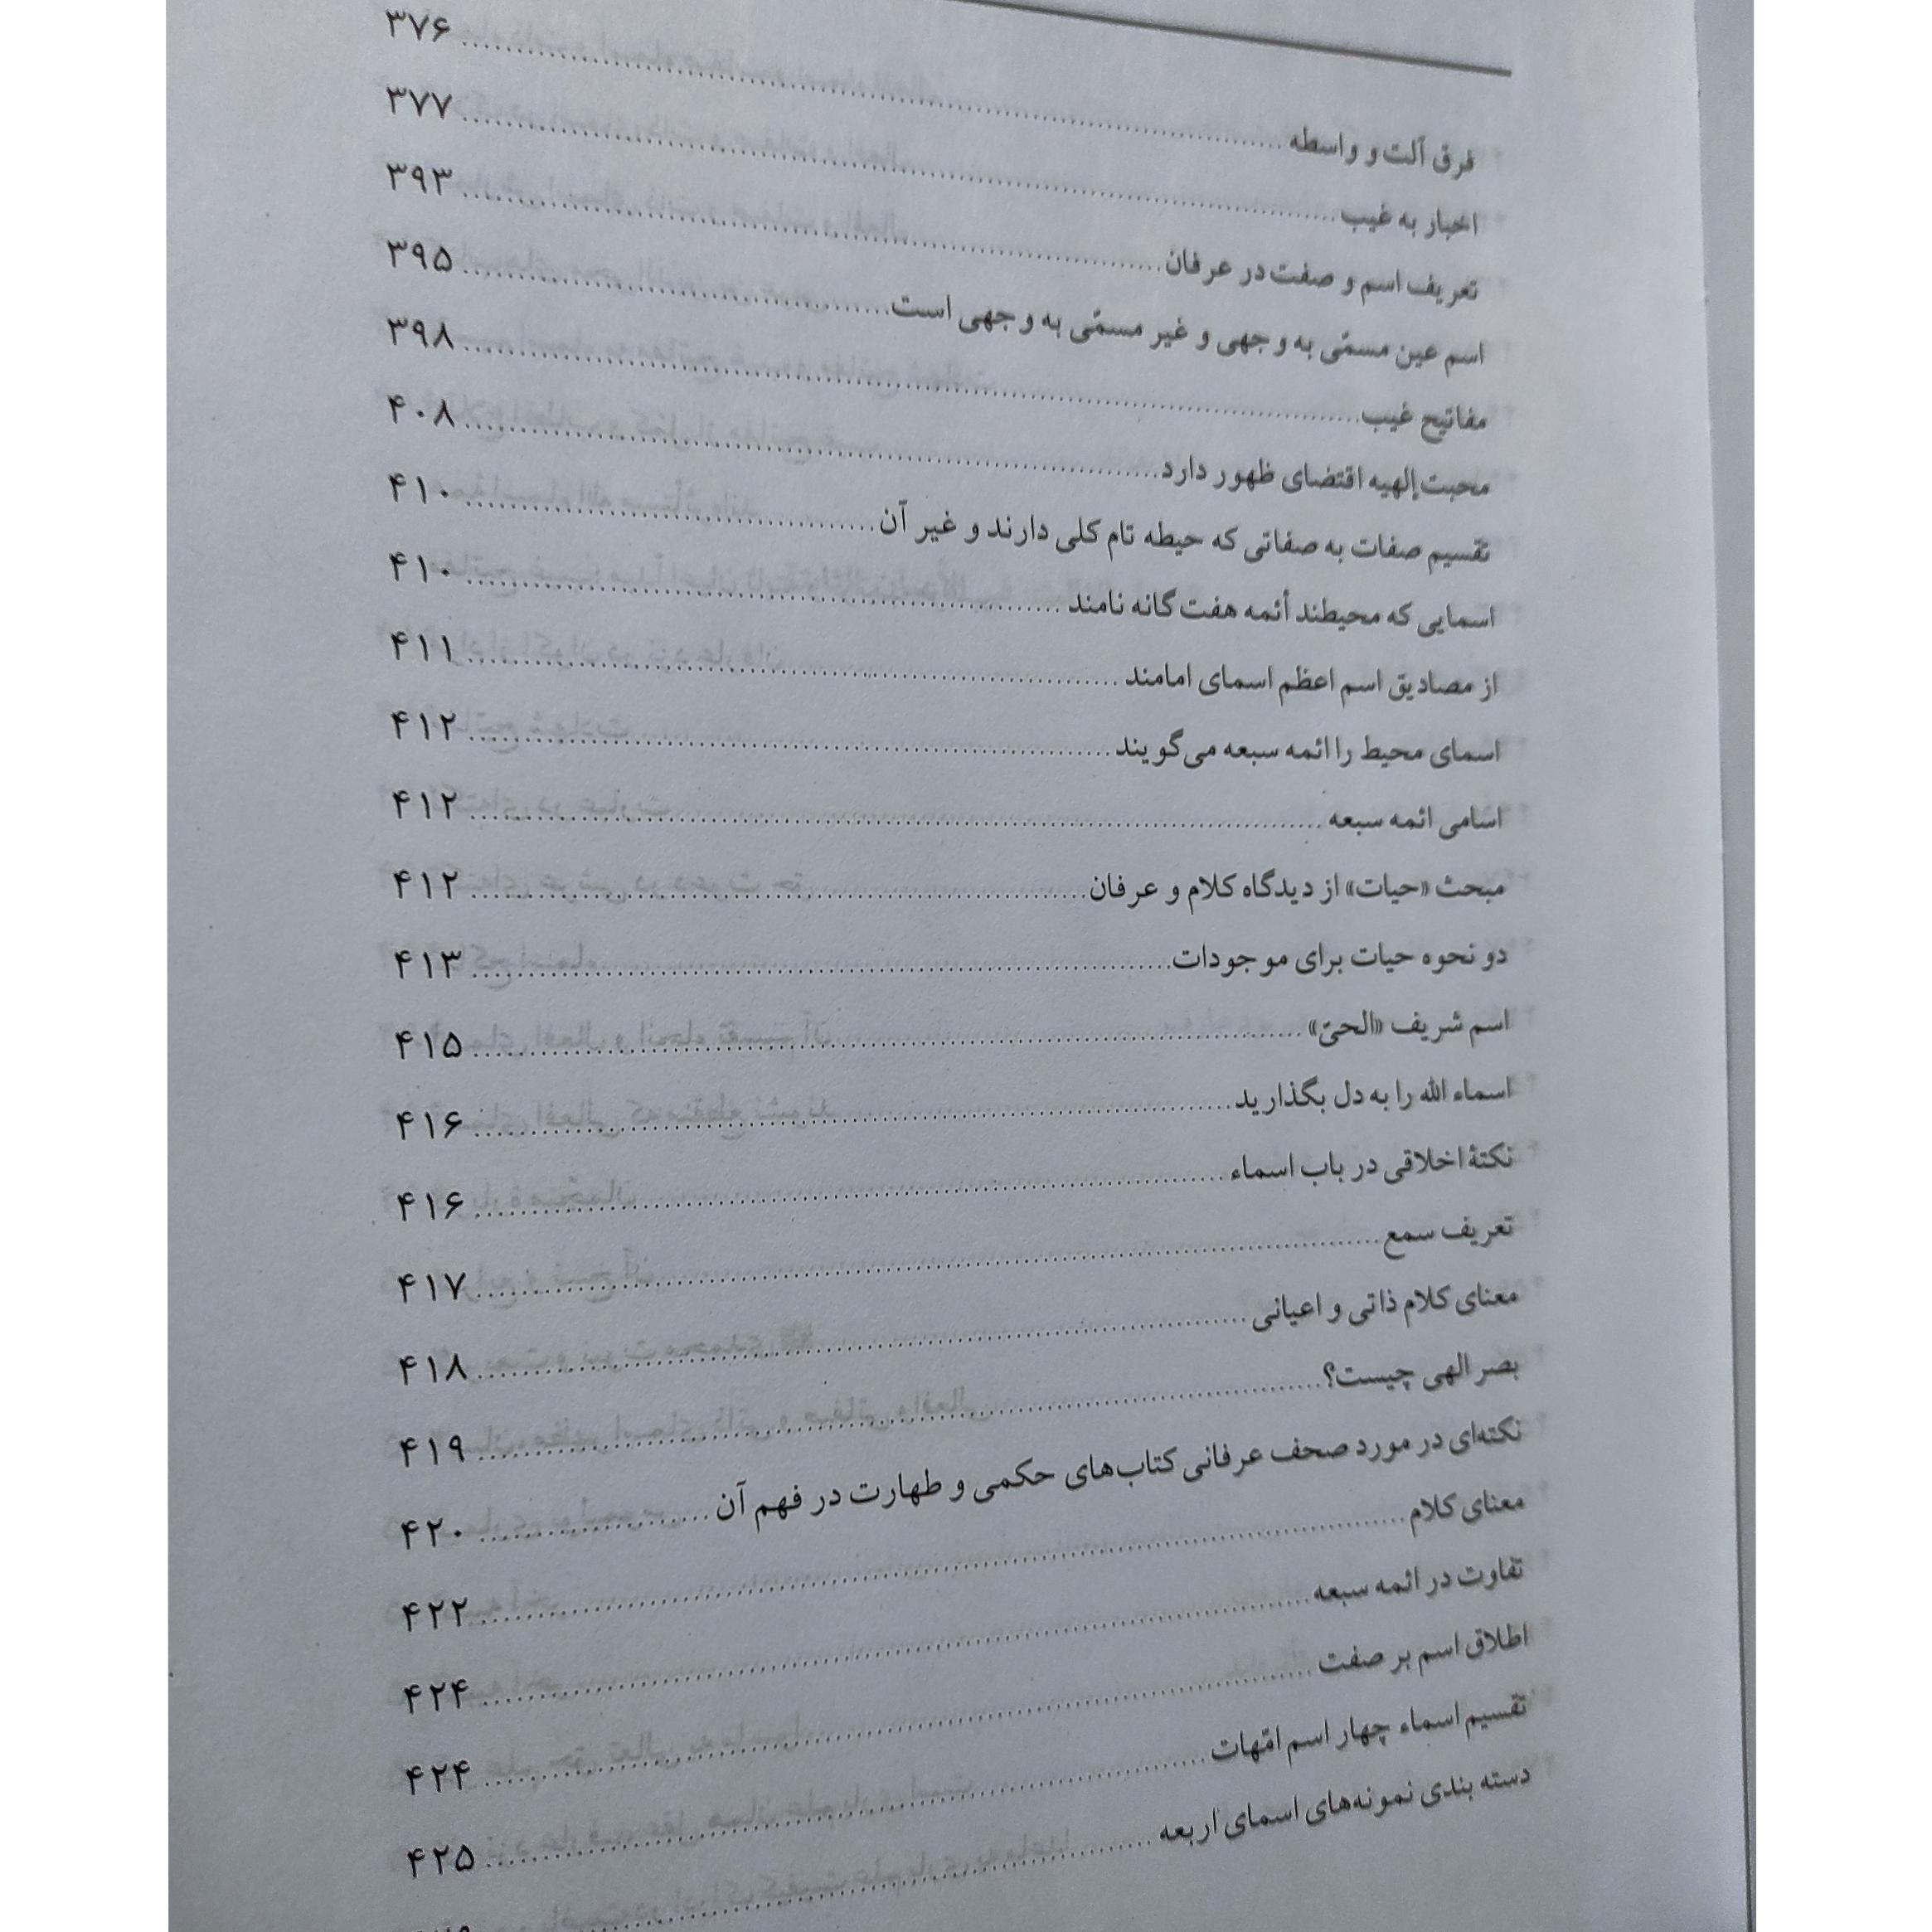 فرق آلت و واسطه ........ ۳۷۶
اخبار به غیب ........ ۳۷۷
تعریف اسم و صفت در عرفان ........ ۳۹۳
اسم عین مسمّی به وجهی و غیر مسمّی به وجهی است ........ ۳۹۵
مفاتیح غیب ........ ۳۹۸
محبت إلهیه اقتضای ظهور دارد ........ ۴۰۸
تقسیم صفات به صفاتی که حیطه تام کلی دارند و غیر آن ........ ۴۱۰
اسمایی که محیطند أئمه هفت گانه نامند ........ ۴۱۰
از مصادیق اسم اعظم اسمای امامند ........ ۴۱۱
اسمای محیط را ائمه سبعه می‌گویند ........ ۴۱۲
اسامی ائمه سبعه ........ ۴۱۲
مبحث «حیات» از دیدگاه کلام و عرفان ........ ۴۱۲
دو نحوه حیات برای موجودات ........ ۴۱۳
اسم شریف «الحیّ» ........ ۴۱۵
اسماء الله را به دل بگذارید ........ ۴۱۶
نکتهٔ اخلاقی در باب اسماء ........ ۴۱۶
تعریف سمع ........ ۴۱۷
معنای کلام ذاتی و اعیانی ........ ۴۱۸
بصر الهی چیست؟ ........ ۴۱۹
نکته‌ای در مورد صحف عرفانی کتاب‌های حکمی و طهارت در فهم آن ........ ۴۲۰
معنای کلام ........ ۴۲۲
تفاوت در ائمه سبعه ........ ۴۲۴
اطلاق اسم بر صفت ........ ۴۲۴
تقسیم اسماء چهار اسم امّهات ........ ۴۲۵
دسته بندی نمونه‌های اسمای اربعه ........